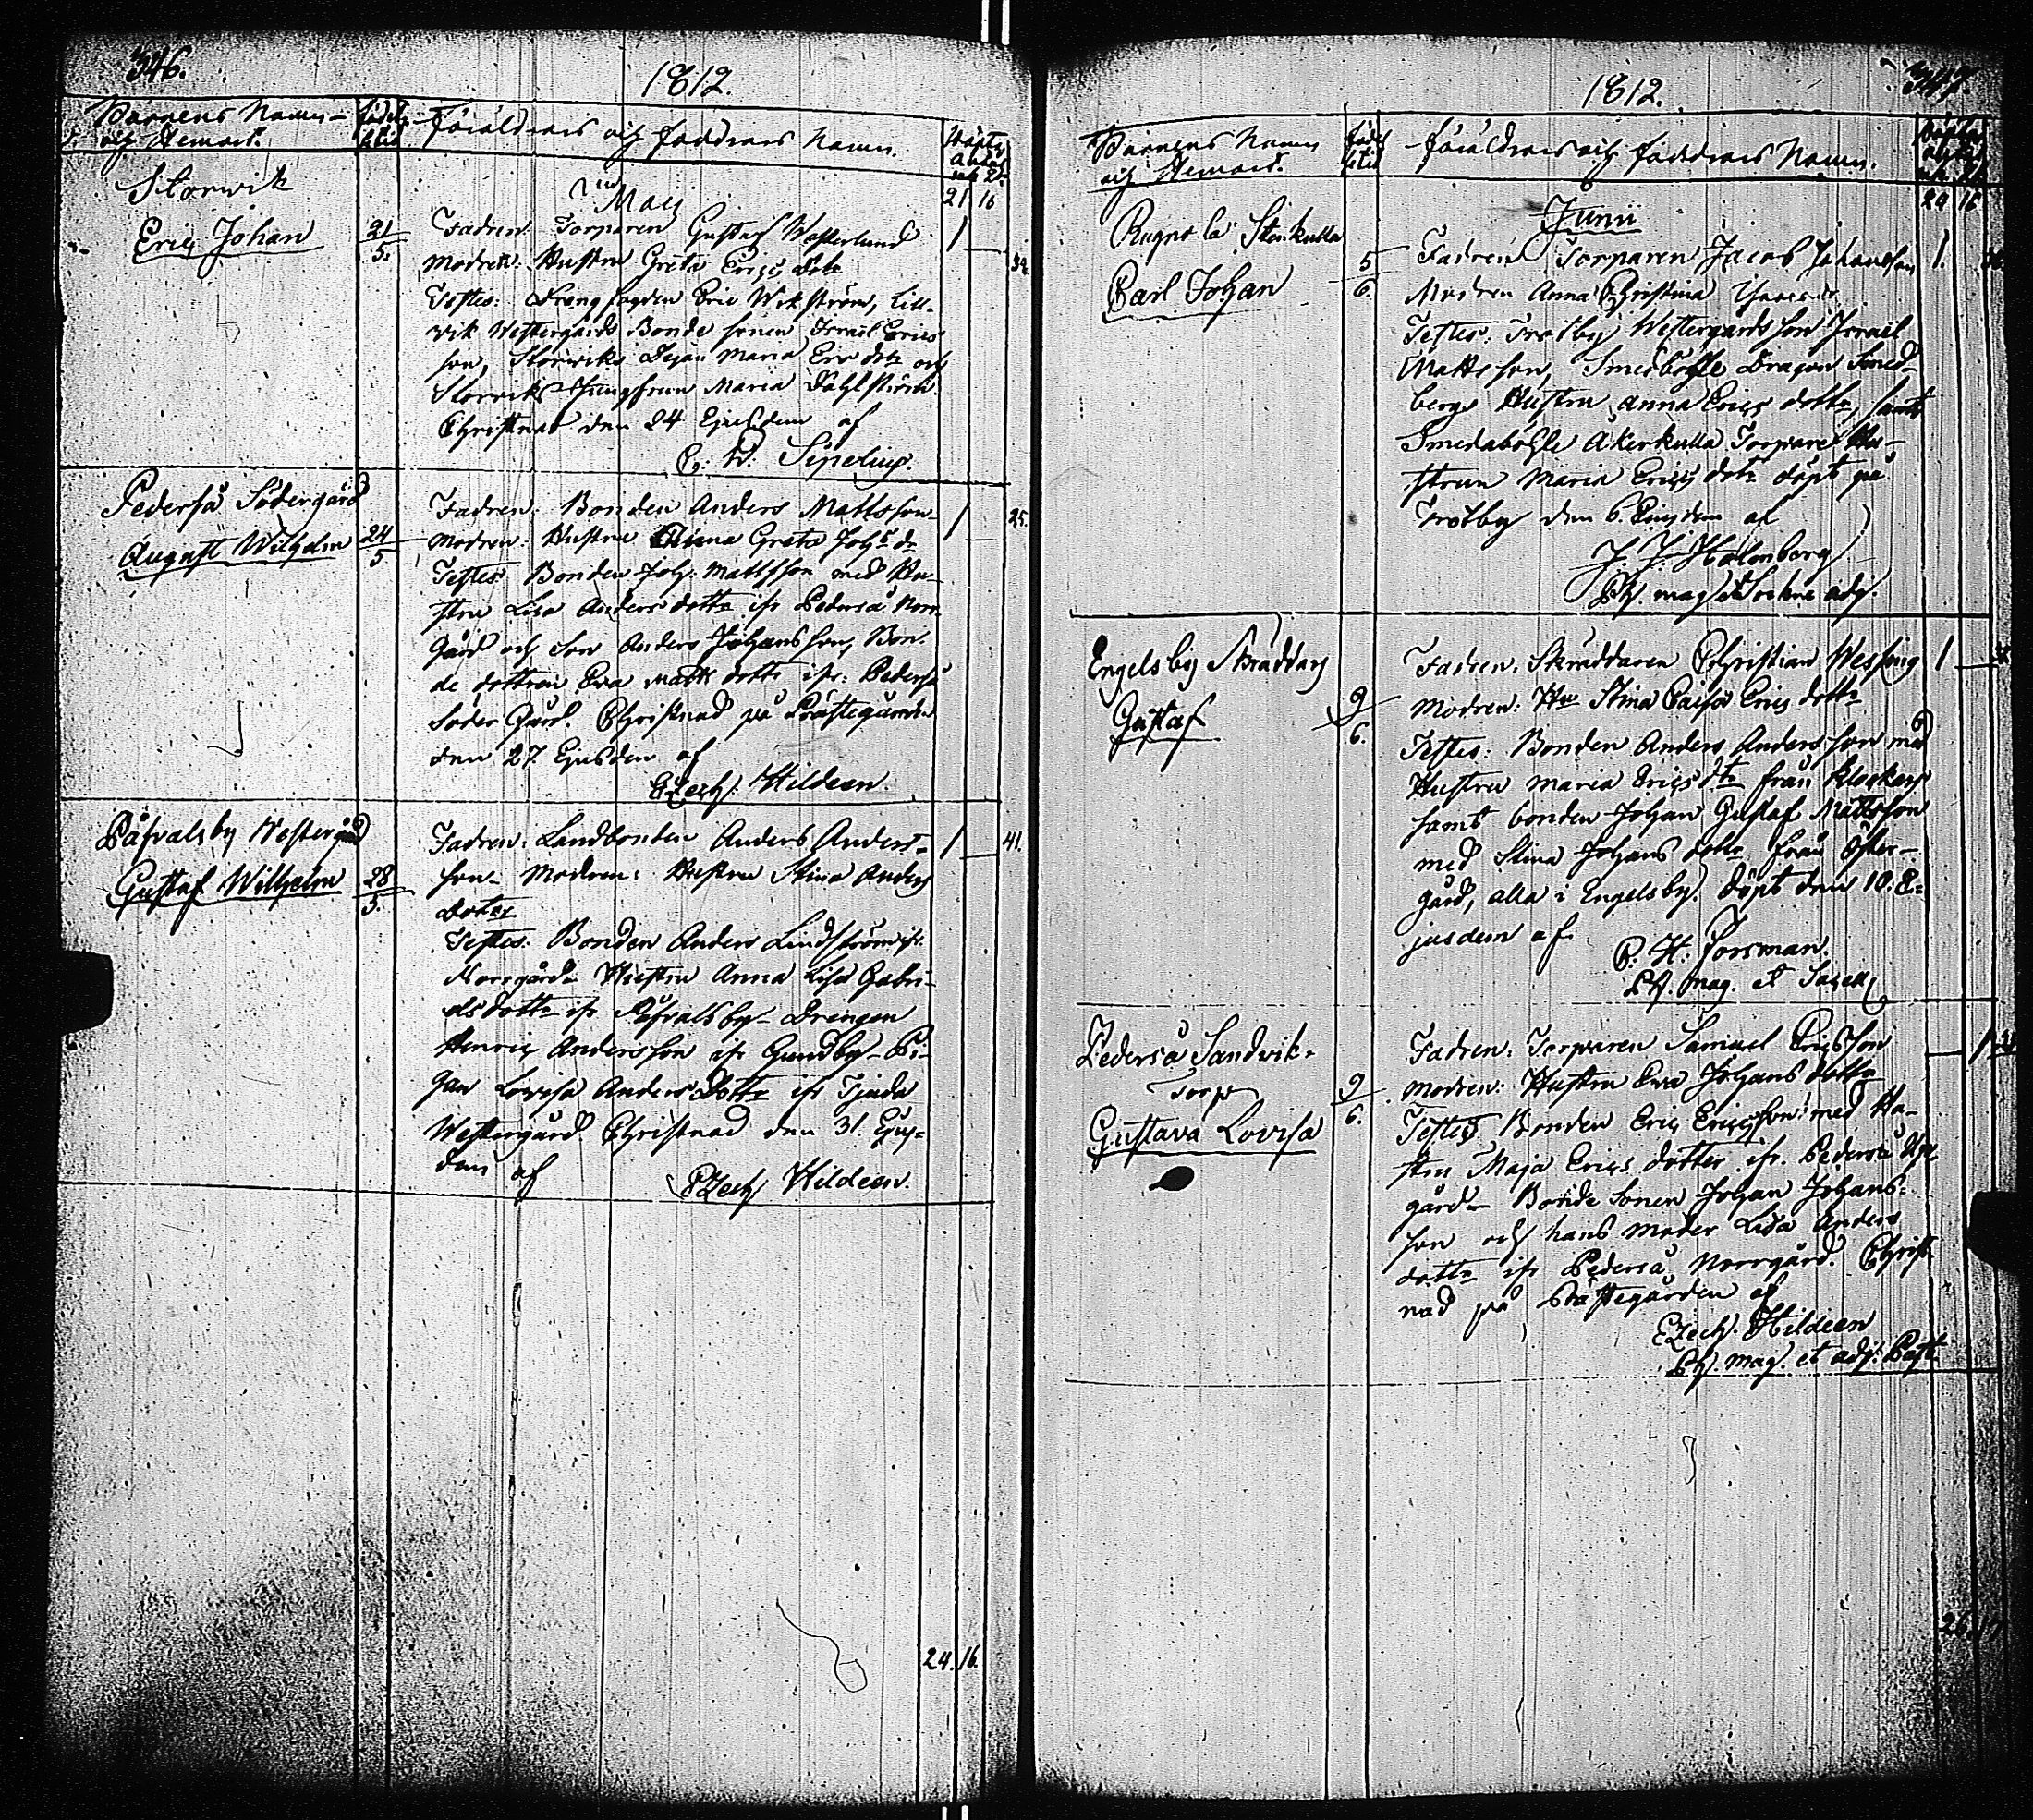 346.
1812.
Barnens Namn
och Hemort.
födelse
tid
Föräldrars och faddrars Namn.
Storwik
in Maij
21 16
Eric Johan
21/5.
Fadren Torparen Gustaf Westerlund
1
Modren: Hustru Greta Erics Dotr
Testes: Dreng fogden Eric Wikström, Lill-
vik Westergårds Bonde sonen Israel Erics
son, Storwiks Pigan Maria Erics dotr och
Storwiks Jungfrun Maria Dahlström
Christnad den 24 Ejusdem af
Sipelius.
Pederså Södergård
August Wilhelm
24/5
Fadren: Bonden Anders Mattsson
1
25.
Modren: Hustru Greta Joh:s dr
Testes Bonden Joh: Mattsson med Hu-
stru Lisa Anders dottr ifr Pederså Norr
Gård och Son Anders Johansson, Bon-
de dottren Eva Matts dottr ifr: Pederså
Söder Gård. Christnad på Prästegården
den 27 Ejusdem af
Ezech: Hildeen.
Påfvalsby Westergård
Gustaf Wilhelm
28/5.
Fadren: Landbonden Anders Anders-
1
41.
son Modren: Hustru Stina Anders
Dotter
Testes: Bonden Anders Lindström ifr
Norrgård Hustru Anna Lisa Gabri-
elsdottr ifr Påfvalsby Drengen
Henric Andersson ifr Gundby Pi-
gan Lovisa Anders Dottr ifr Tjuda
Westergård Christnad den 31. Ejus-
dem af
Ezech Hildeen.
24. 16.
347.
1812.
Barnens Namn
och Hemort.
föd
tid
föräldrars och faddrars Namn.
24 16
Junii
Stenkulla
Carl Johan
5/6.
Fadren Torparen Jacob Johansson
1.
Modren Anna Christina
Testes: Trotby Westergårds son Israel
Mattsson, Smedböhle Dragon Smed-
bergs Hustru Anna Erics dottr, samt
Smedaböhle Åkerkulla Torpare Hu-
strun Maria Erics dotr döpt på
Trotby den 6. Ejusdem af
J. J. Holmberg
Ph. mag et Sockne adj.
Engelsby Skräddars
Gustaf
9/6.
Fadren. Skräddaren Christian Wessing
1
Modren: Hu Stina Caisa Erics dottr
Testes: Bonden Anders Andersson med
Hustru Maria Erics dtr från Klockars
samt bonden Johan Gustaf Mattsson
med Stina Johans dottr från Öster-
gård, alla i Engelsby. Döpt den 10. E-
jusdem af
Forsman.
Ph. mag. et Sacell
Pederså Sandvik-
Torp
Gustava Lovisa
9/6.
Fadren: Torparen Samuel Ericsson
1
Modren: Hustru Eva Johans dotter
Testes Bonden Eric Ericsson med Hu-
stru Maja Erics dotter ifr. Pederså
gård Bonde Sonen Johan Johans-
son och hans Moder Lisa Anders
dottr ifr Pederså Norrgård. Christ-
nad på Prästegården af
Ezech. Hildeen
Ph. mag. et adj. Past.
26. 17